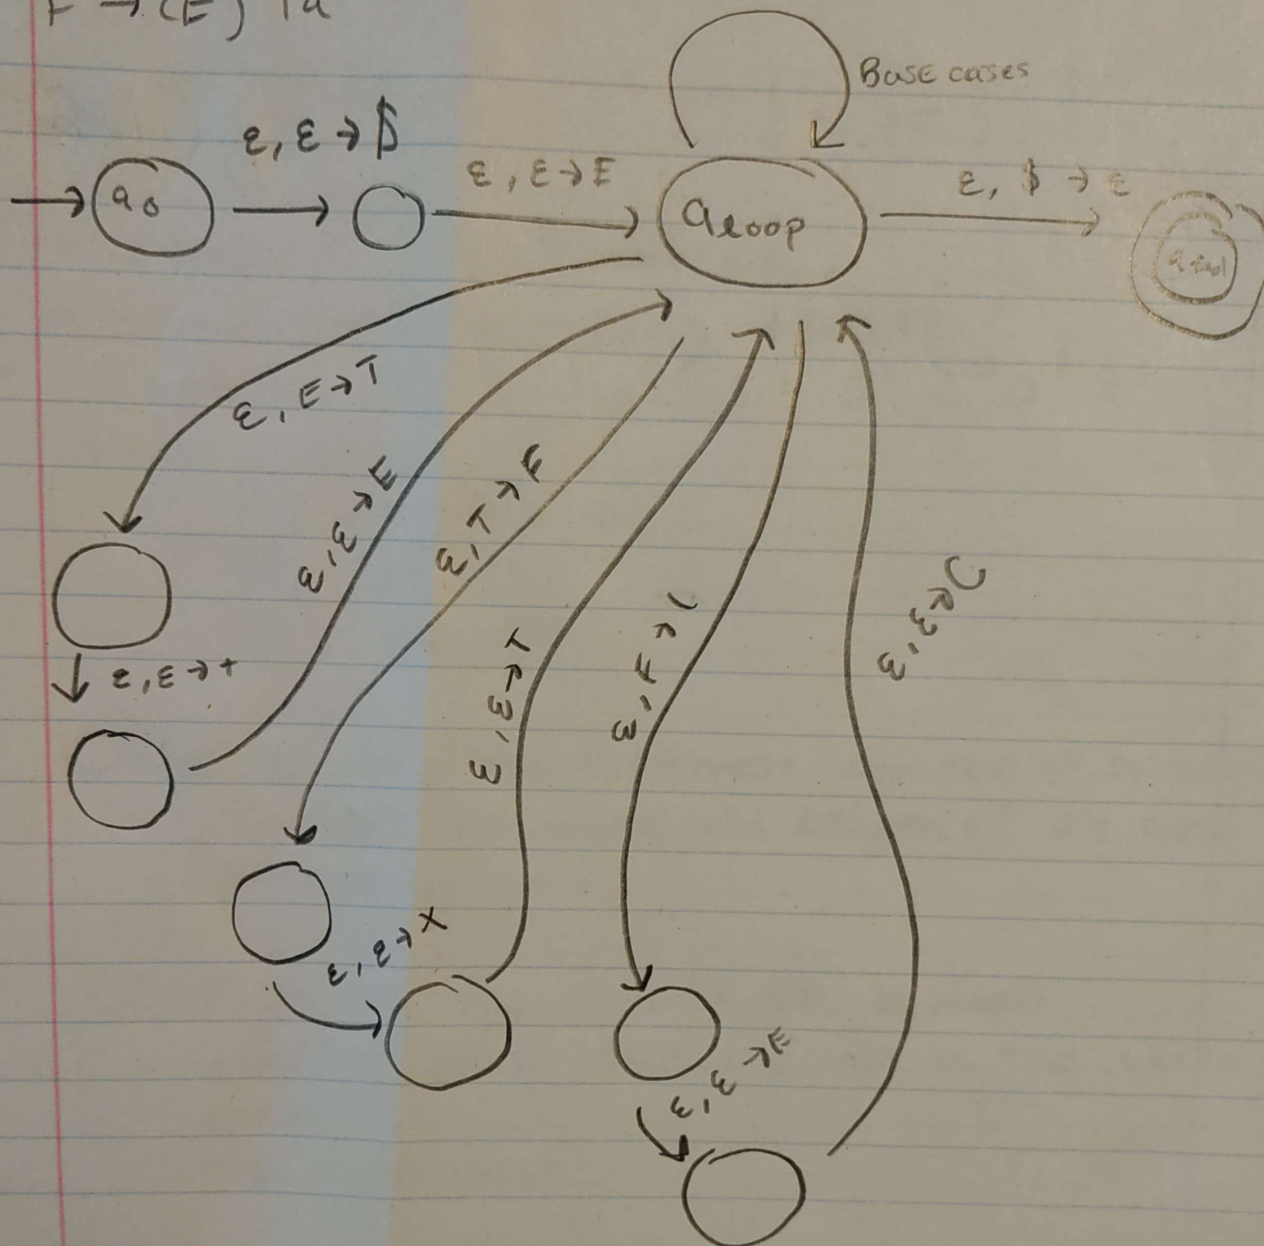 F → (E) | a
Base cases
ε, ε → $
ε, ε → E
ε, $ → ε
q0
qloop
qfinal
ε, E → T
ε, ε → E
ε, T → F
ε, ε → +
ε, ε → T
ε, F → )
ε, ε → (
ε, ε → x
ε, ε → E